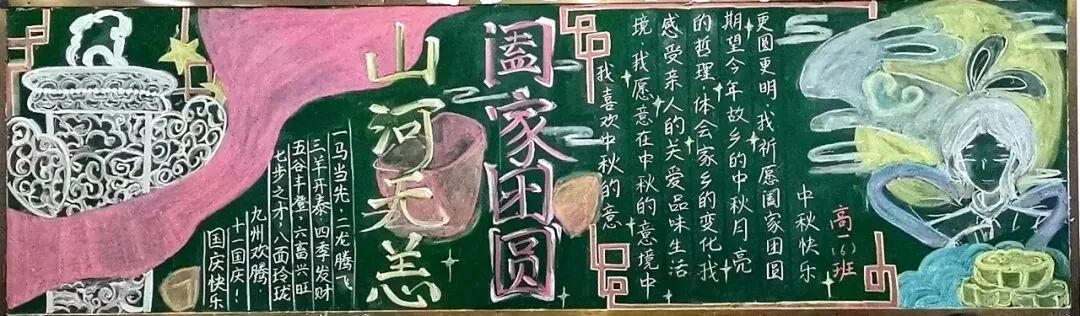 一马当先,二龙腾飞
三羊开泰,四季发财
五谷丰登,六畜兴旺
七步之才,八西玲珑
九州欢腾,
十一国庆!
国庆快乐
山河无恙
阖家团圆
我喜欢中秋的意
境,我愿意在中秋的意境中
感受亲人的关爱品味生活
的哲理,体会家乡的变化,我
期望今年故乡的中秋月亮
更圆更明,我祈愿阖家团圆
中秋快乐
高二(6)班